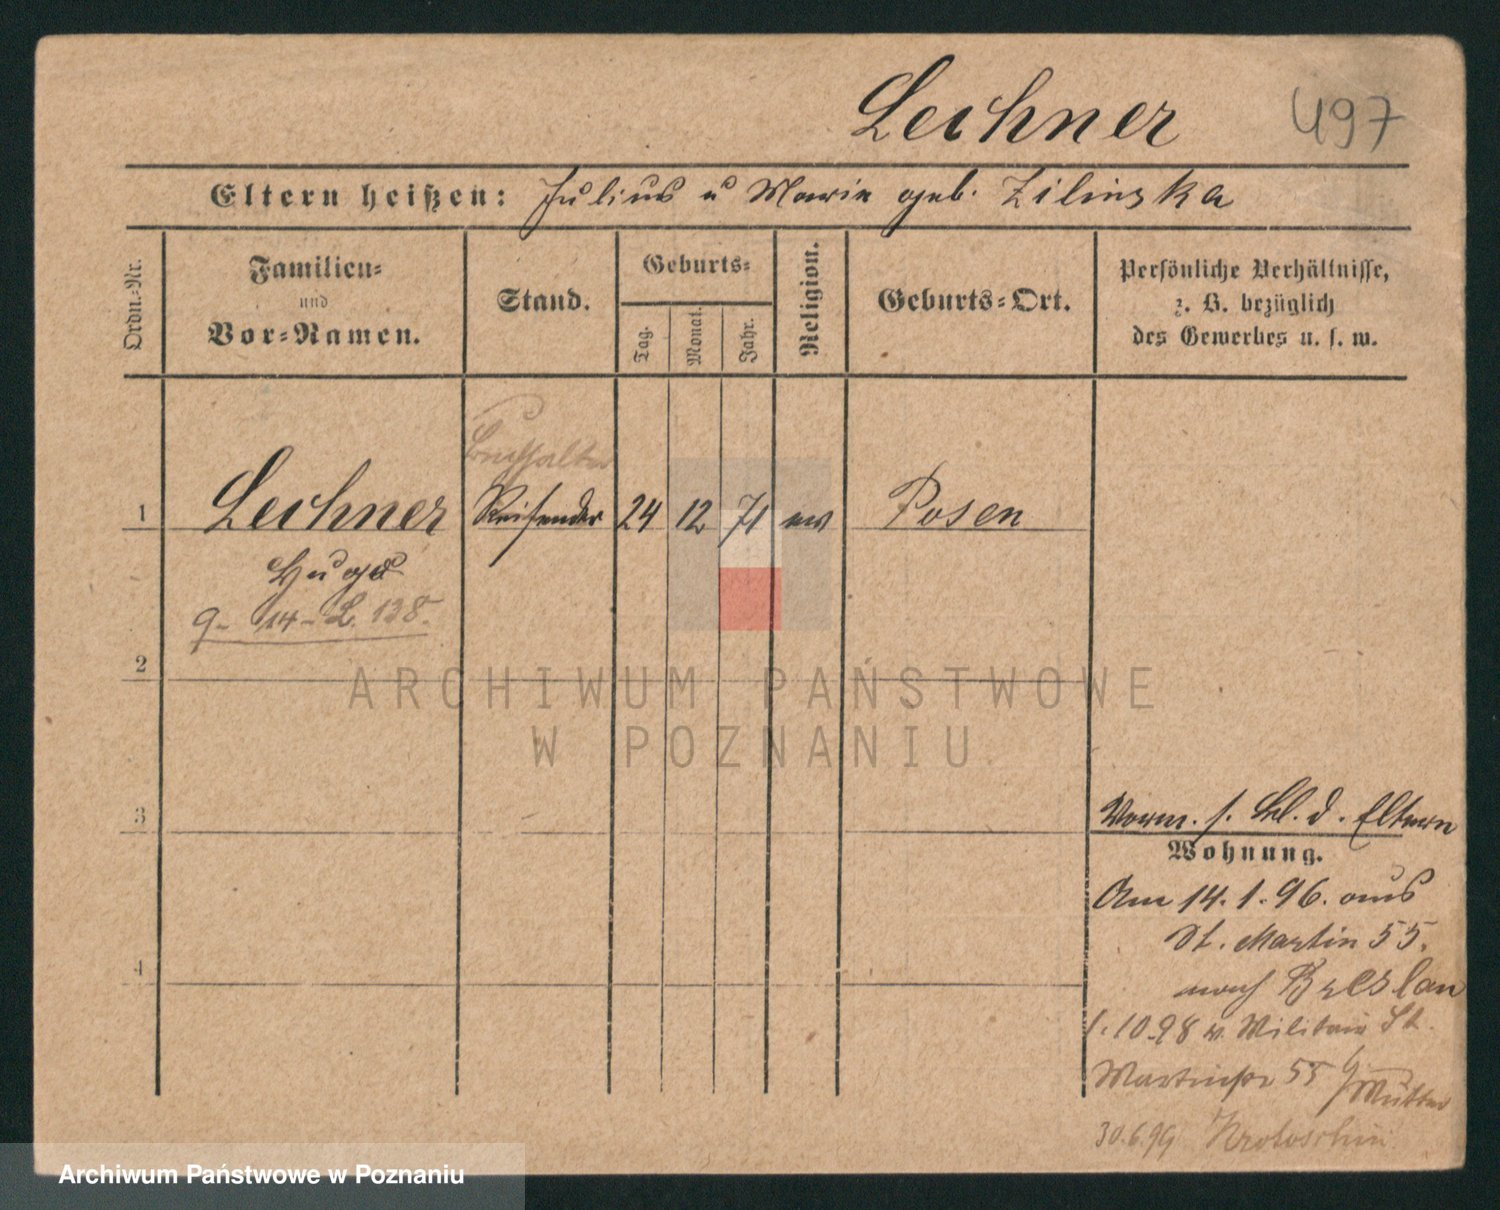 Lechner 497
Eltern heißen: Julius u Marie geb. Zilinska
Ordn.-Nr.
Familien-
und
Vor-Namen.
Stand.
Geburts-
Tag.
Monat.
Jahr.
Religion.
Geburts-Ort.
Persönliche Verhältnisse,
z. B. bezüglich
des Gewerbes u. s. w.
Buchhalter
1 Lechner Reisender 24 12 71 ev Posen
Hugo
9- 14- L. 138.
2
ARCHIWUM PAŃSTWOWE
W POZNANIU
3
Vorm. s. Bl. d. Eltern
Wohnung.
Am 14.1.96. aus
St. Martin 55.
nach Breslau
4
1.10.98 v. Militair St.
Martinstr 55 Mutter
30.6.99 Krotoschin
Archiwum Państwowe w Poznaniu